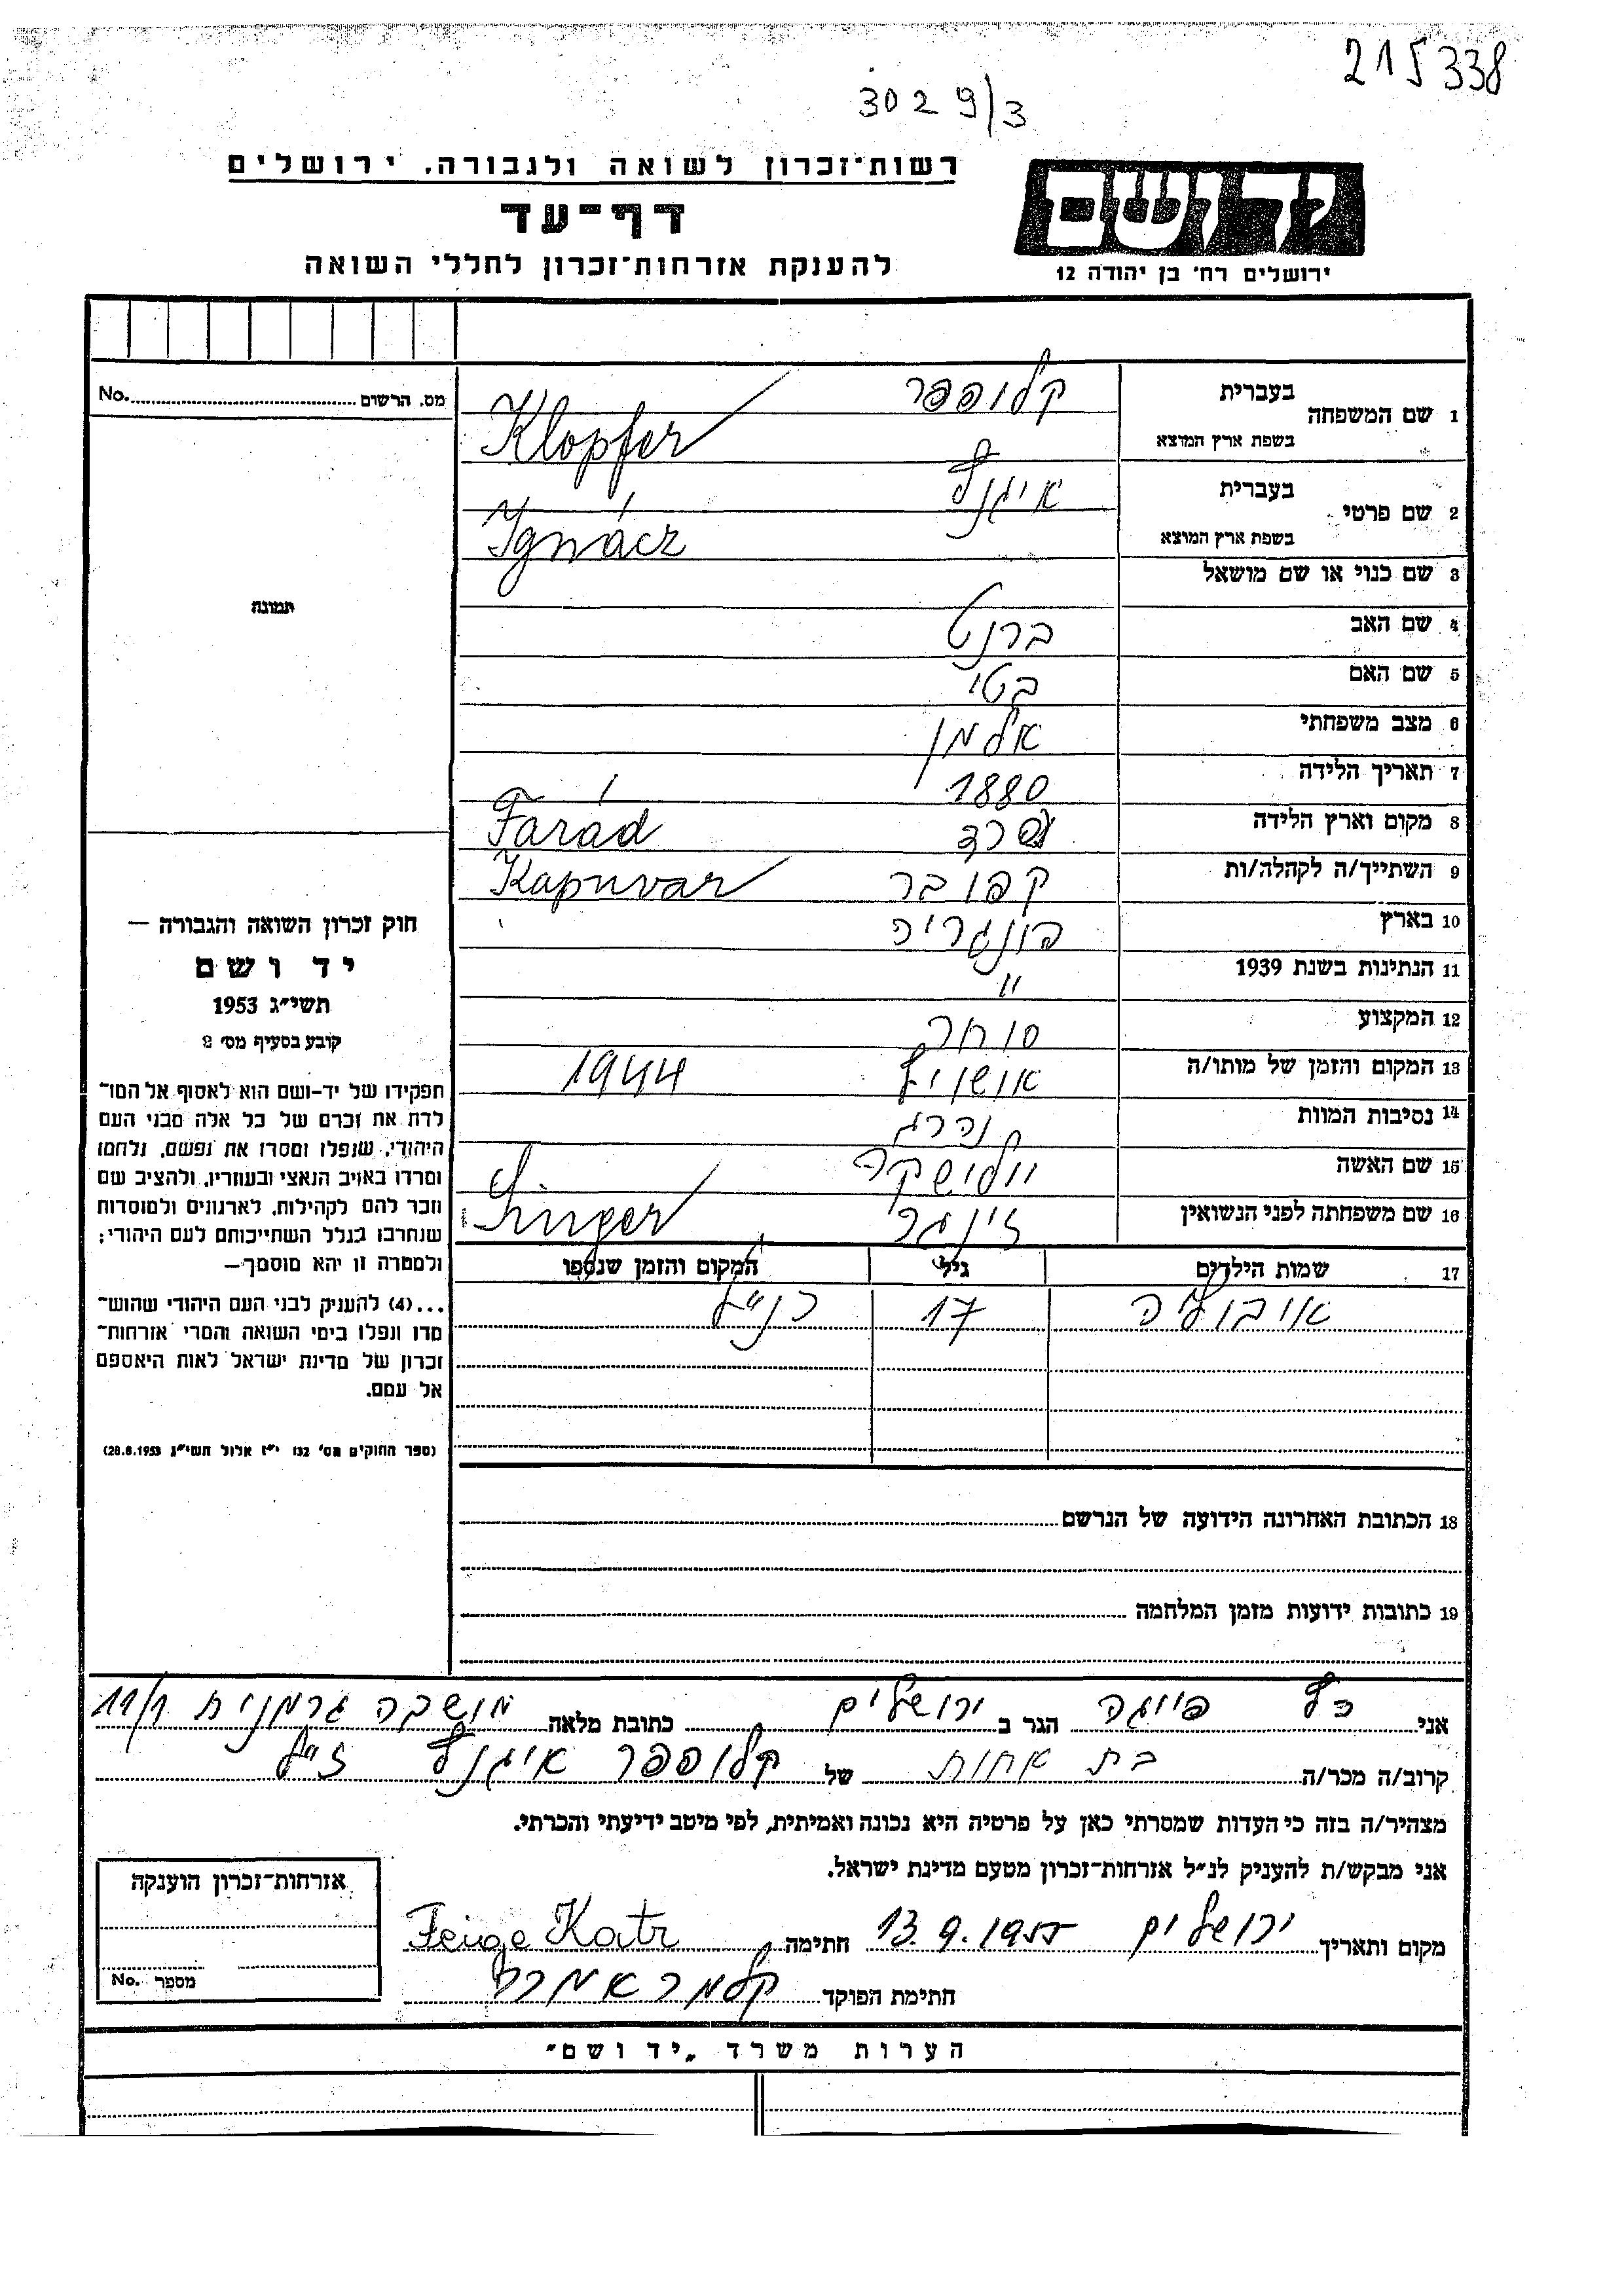 215338
3029/3
רשות־זכרון לשואה ולגבורה, ירושלים
דף־עד
להענקת אזרחות־זכרון לחללי השואה
ידושם
ירושלים רח׳ בן יהודה 12
1 שם המשפחה בעברית קלופפר
בשפת ארץ המוצא Klopfer
2 שם פרטי בעברית איגנץ
בשפת ארץ המוצא Ignácz
3 שם כנוי או שם מושאל
4 שם האב ברנט
5 שם האם בטי
6 מצב משפחתי אלמן
7 תאריך הלידה 1880
8 מקום וארץ הלידה פרד Farád
9 השתייך/ה לקהלה/ות קפובר Kapuvar
10 בארץ הונגריה
11 הנתינות בשנת 1939 "
12 המקצוע סוחר
13 המקום והזמן של מותו/ה אושויץ 1944
14 נסיבות המוות נהרג
15 שם האשה יולישקה
16 שם משפחתה לפני הנשואין זינגר Singer
17 שמות הילדים גיל המקום והזמן שנספו
17 כנ״ל
18 הכתובת האחרונה הידועה של הנרשם
19 כתובות ידועות מזמן המלחמה
מס. הרשום No.
תמונה
חוק זכרון השואה והגבורה —
יד ושם
תשי״ג 1953
קובע בסעיף מס׳ 2
תפקידו של יד-ושם הוא לאסוף אל המו־
לדת את זכרם של כל אלה מבני העם
היהודי, שנפלו ומסרו את נפשם, נלחמו
ומרדו באויב הנאצי ובעוזריו, ולהציב שם
וזכר להם לקהילות, לארגונים ולמוסדות
שנחרבו בגלל השתייכותם לעם היהודי;
ולמטרה זו יהא מוסמך—
...(4) להעניק לבני העם היהודי שהוש־
מדו ונפלו בימי השואה והמרי אזרחות־
זכרון של מדינת ישראל לאות היאספם
אל עמם.
(ספר החוקים מס׳ 132 י״ז אלול תשי״ג 28.8.1953)
אני כץ פייגה הגר ב ירושלים כתובת מלאה מושבה גרמנית 11/1
קרוב/ה מכר/ה בת אחות של קלופפר איגנץ ז״ל
מצהיר/ה בזה כי העדות שמסרתי כאן על פרטיה היא נכונה ואמיתית, לפי מיטב ידיעתי והכרתי.
אני מבקש/ת להעניק לנ״ל אזרחות־זכרון מטעם מדינת ישראל.
מקום ותאריך ירושלים 13.9.1955 חתימה Feige Katz
חתימת הפוקד
אזרחות־זכרון הוענקה
מספר No.
הערות משרד „יד ושם״